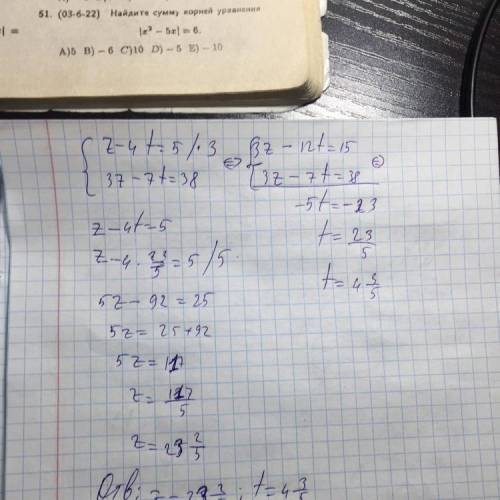 51. (03-6-22) Найдите сумму корней уравнения
| =
|x² − 5x| = 6.
A)5 B) − 6 C)10 D) − 5 E) − 10
z − 4t = 5 /·3
3z − 7t = 38
3z − 12t = 15
3z − 7t = 38
-5t = -23
t = 23/5
t = 4 3/5
z − 4t = 5
z − 4 · 23/5 = 5 / 5
5z − 92 = 25
5z = 25 + 92
5z = 117
z = 117/5
z = 23 2/5
Отв: z = 23 ; t = 4 3/5